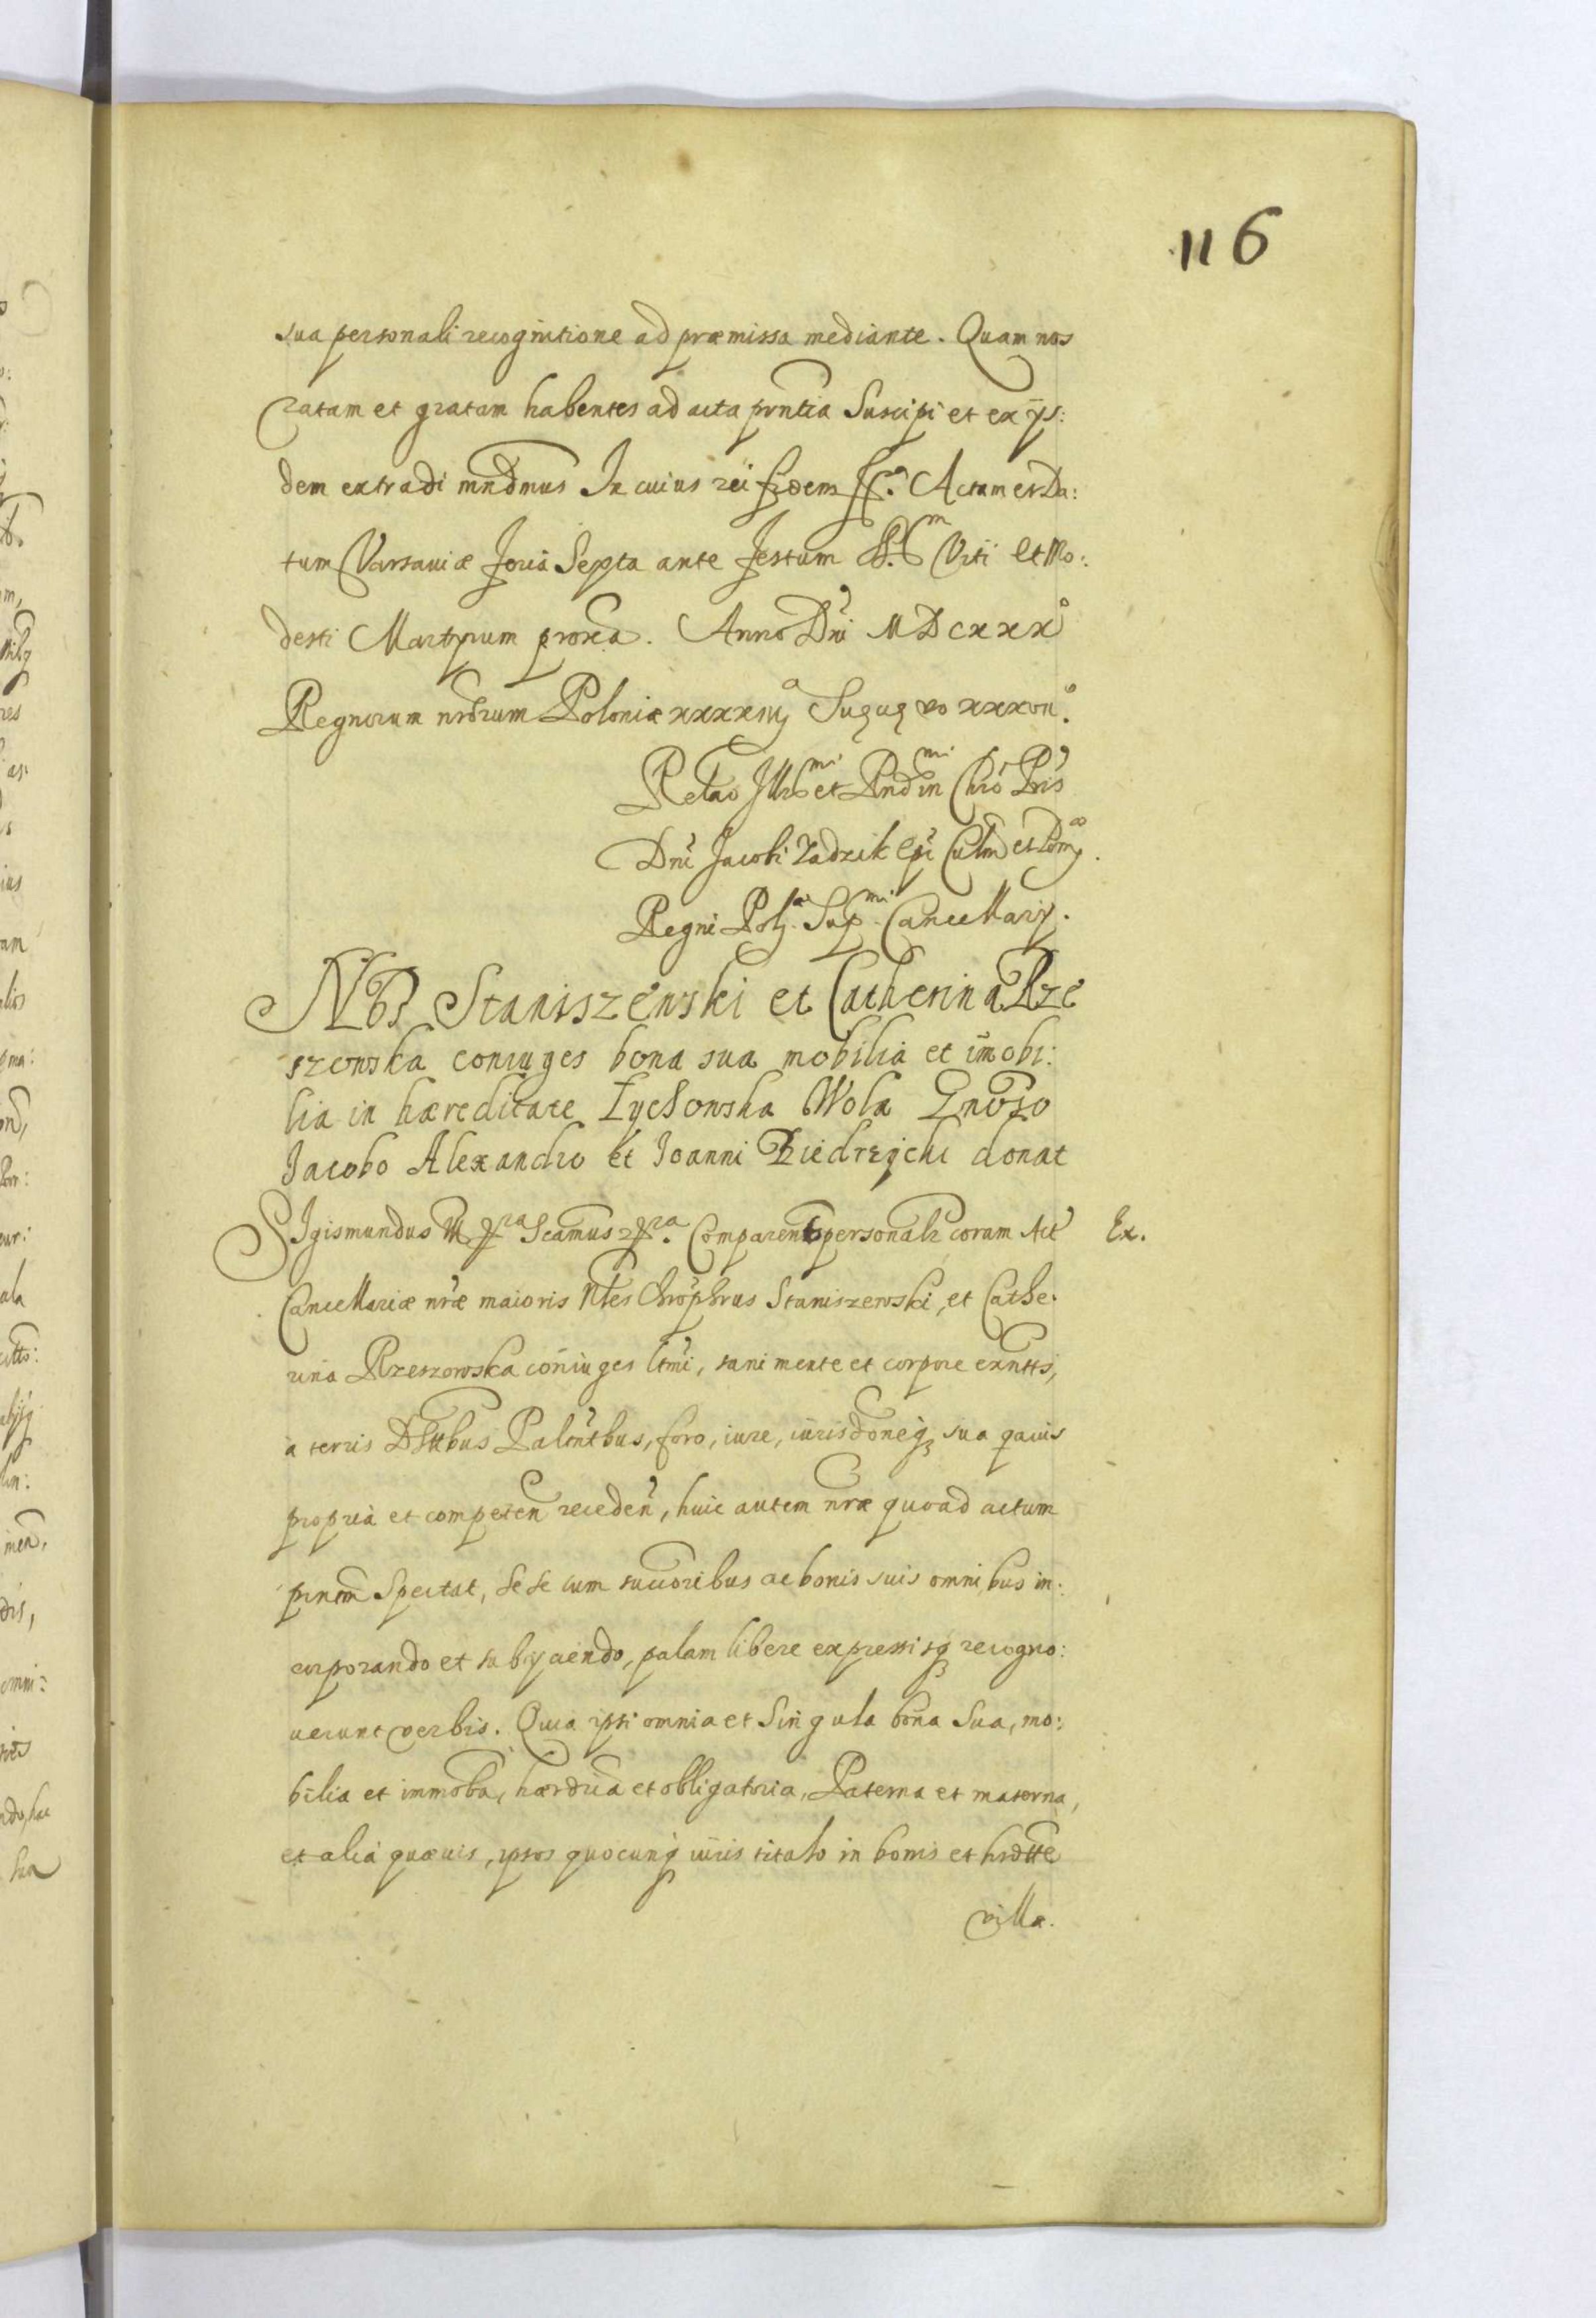 116
sua personali recognitione ad præmissa mediante. Quam nos
ratam et gratam habentes ad acta pñtia Suscipi et ex ijs:
dem extradi mñdmus In cuius rei fidem ss. Actum et Da:
tum Varsauiæ feria Sexta ante festum SS. Viti et Mo:
desti Martyrum proxa. Anno Dñi MDCXXX°
Regnorum nrõrum Poloniæ xxxxiij° vo xxxvii°.
Relao Illrmi et Rndmi in Chro Pris
Dñi Jacobi Zadzik Epi Culm et Pom
Regni Pol. Sup.mi Cancellarij.
NBs Staniszewski et Catherina Rze
szowska coniuges bona sua mobilia et imobi:
lia in hæreditate Łychowska Wola Gnõso
Jacobo Alexandro et Joanni donat
SIgismundus III ꝑra Scamus ꝑra. Comparents personalr coram Act Ex.
Cancellariæ nræ maioris Nbles Chrõphrus Staniszewski, et Cathe.
rina Rzeszowska coniuges ltmi, sani mente et corpore exntts,
a terris Dsttbus Palontbus, foro, iure, iurisdoneq3 sua quauis
propria et competeñ recedeñ, huic autem nræ quoad actum
pnntm Spectat, sese cum succoribus ac bonis suis omnibus in:
corporando et subijciendo, palam libere expressisq3 recogno:
uerunt verbis. Quia ipsi omnia et Singula bona Sua, mo:
bilia et immoba, hærdria et obligatoria, Paterna et materna,
et alia quæuis, ipsos quocunq iuris titulo in bonis et hrdtte
villa.